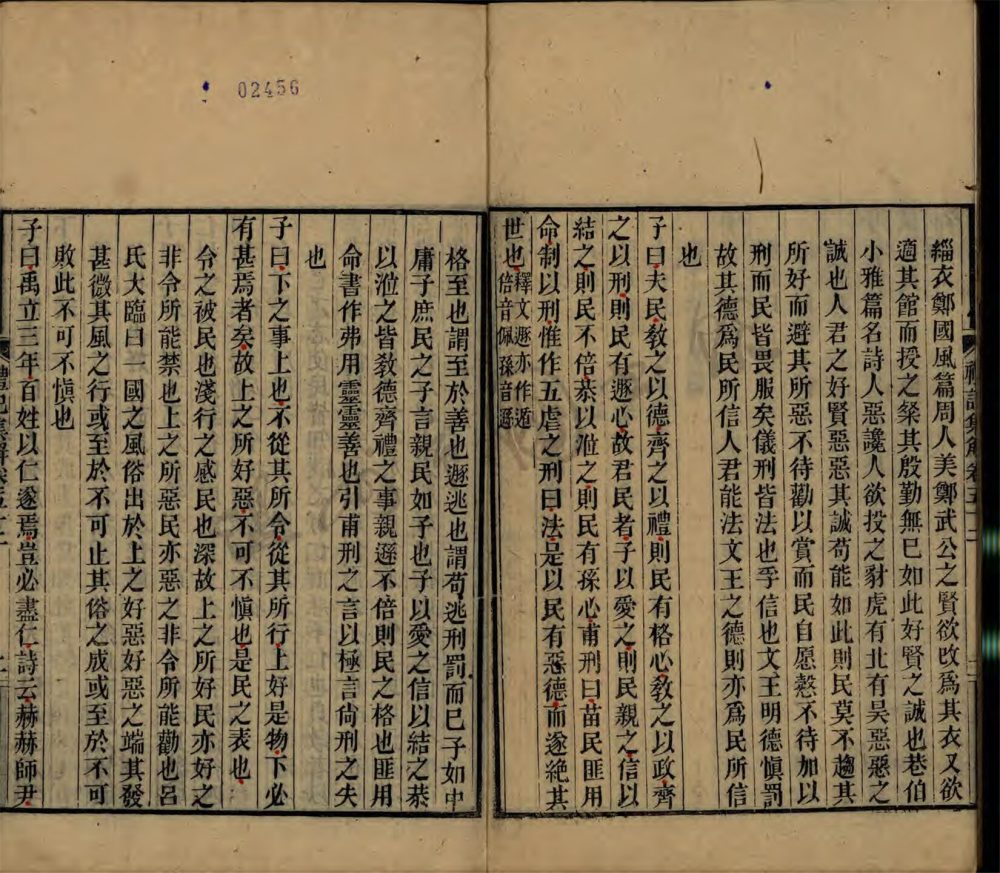 緇衣鄭國風篇周人美鄭武公之賢欲改爲其衣又欲
適其館而授之粲其殷勤無已如此好賢之誠也巷伯
小雅篇名詩人惡讒人欲投之豺虎有北有昊惡惡之
誠也人君之好賢惡惡其誠苟能如此則民莫不趨其
所好而避其所惡不待勸以賞而民自愿愨不待加以
刑而民皆畏服矣儀刑皆法也孚信也文王明德愼罰
故其德爲民所信人君能法文王之德則亦爲民所信
也
子曰夫民教之以德齊之以禮則民有格心教之以政齊
之以刑則民有遯心故君民者子以愛之則民親之信以
結之則民不倍恭以涖之則民有孫心甫刑曰苗民匪用
命制以刑惟作五虐之刑曰法是以民有惡德而遂絶其
世也釋文遯亦作遁
倍音佩孫音遜
禮記集解卷五十二
格至也謂至於善也遯逃也謂苟逃刑罰而已子如中
庸子庶民之子言親民如子也子以愛之信以結之恭
以涖之皆教德齊禮之事親遜不倍則民之格也匪用
命書作弗用靈靈善也引甫刑之言以極言尙刑之失
也
子曰下之事上也不從其所令從其所行上好是物下必
有甚焉者矣故上之所好惡不可不愼也是民之表也
令之被民也淺行之感民也深故上之所好民亦好之
非令所能禁也上之所惡民亦惡之非令所能勸也呂
氏大臨曰一國之風俗出於上之好惡好惡之端其發
甚微其風之行或至於不可止其俗之成或至於不可
敗此不可不愼也
子曰禹立三年百姓以仁遂焉豈必盡仁詩云赫赫師尹
02456